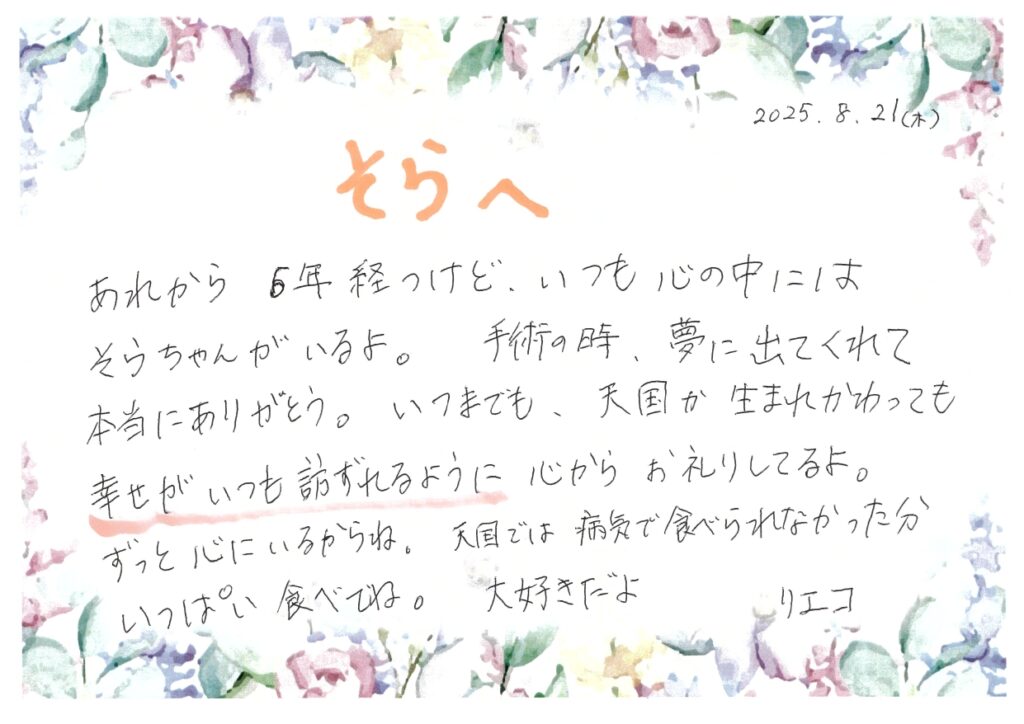 2025.8.21(木)
そらへ
あれから 6年 経つけど、いつも 心の中には
そらちゃんが いるよ。 手術の時、夢に出てくれて
本当にありがとう。 いつまでも、天国が 生まれかわっても
幸せが いつも 訪ずれるように 心から お礼りしてるよ。
ずっと 心に いるからね。 天国では 病気で食べられなかった分
いっぱい 食べてね。 大好きだよ リエコ